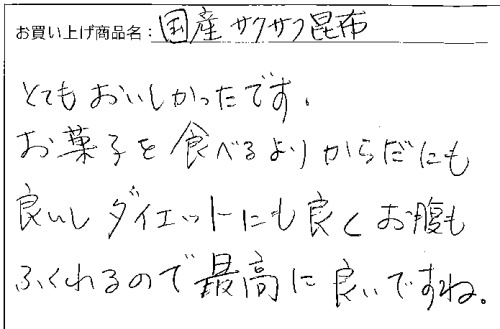 お買い上げ商品名：国産サクサク昆布
とてもおいしかったです。
お菓子を食べるよりからだにも
良いしダイエットにも良くお腹も
ふくれるので最高に良いですね。